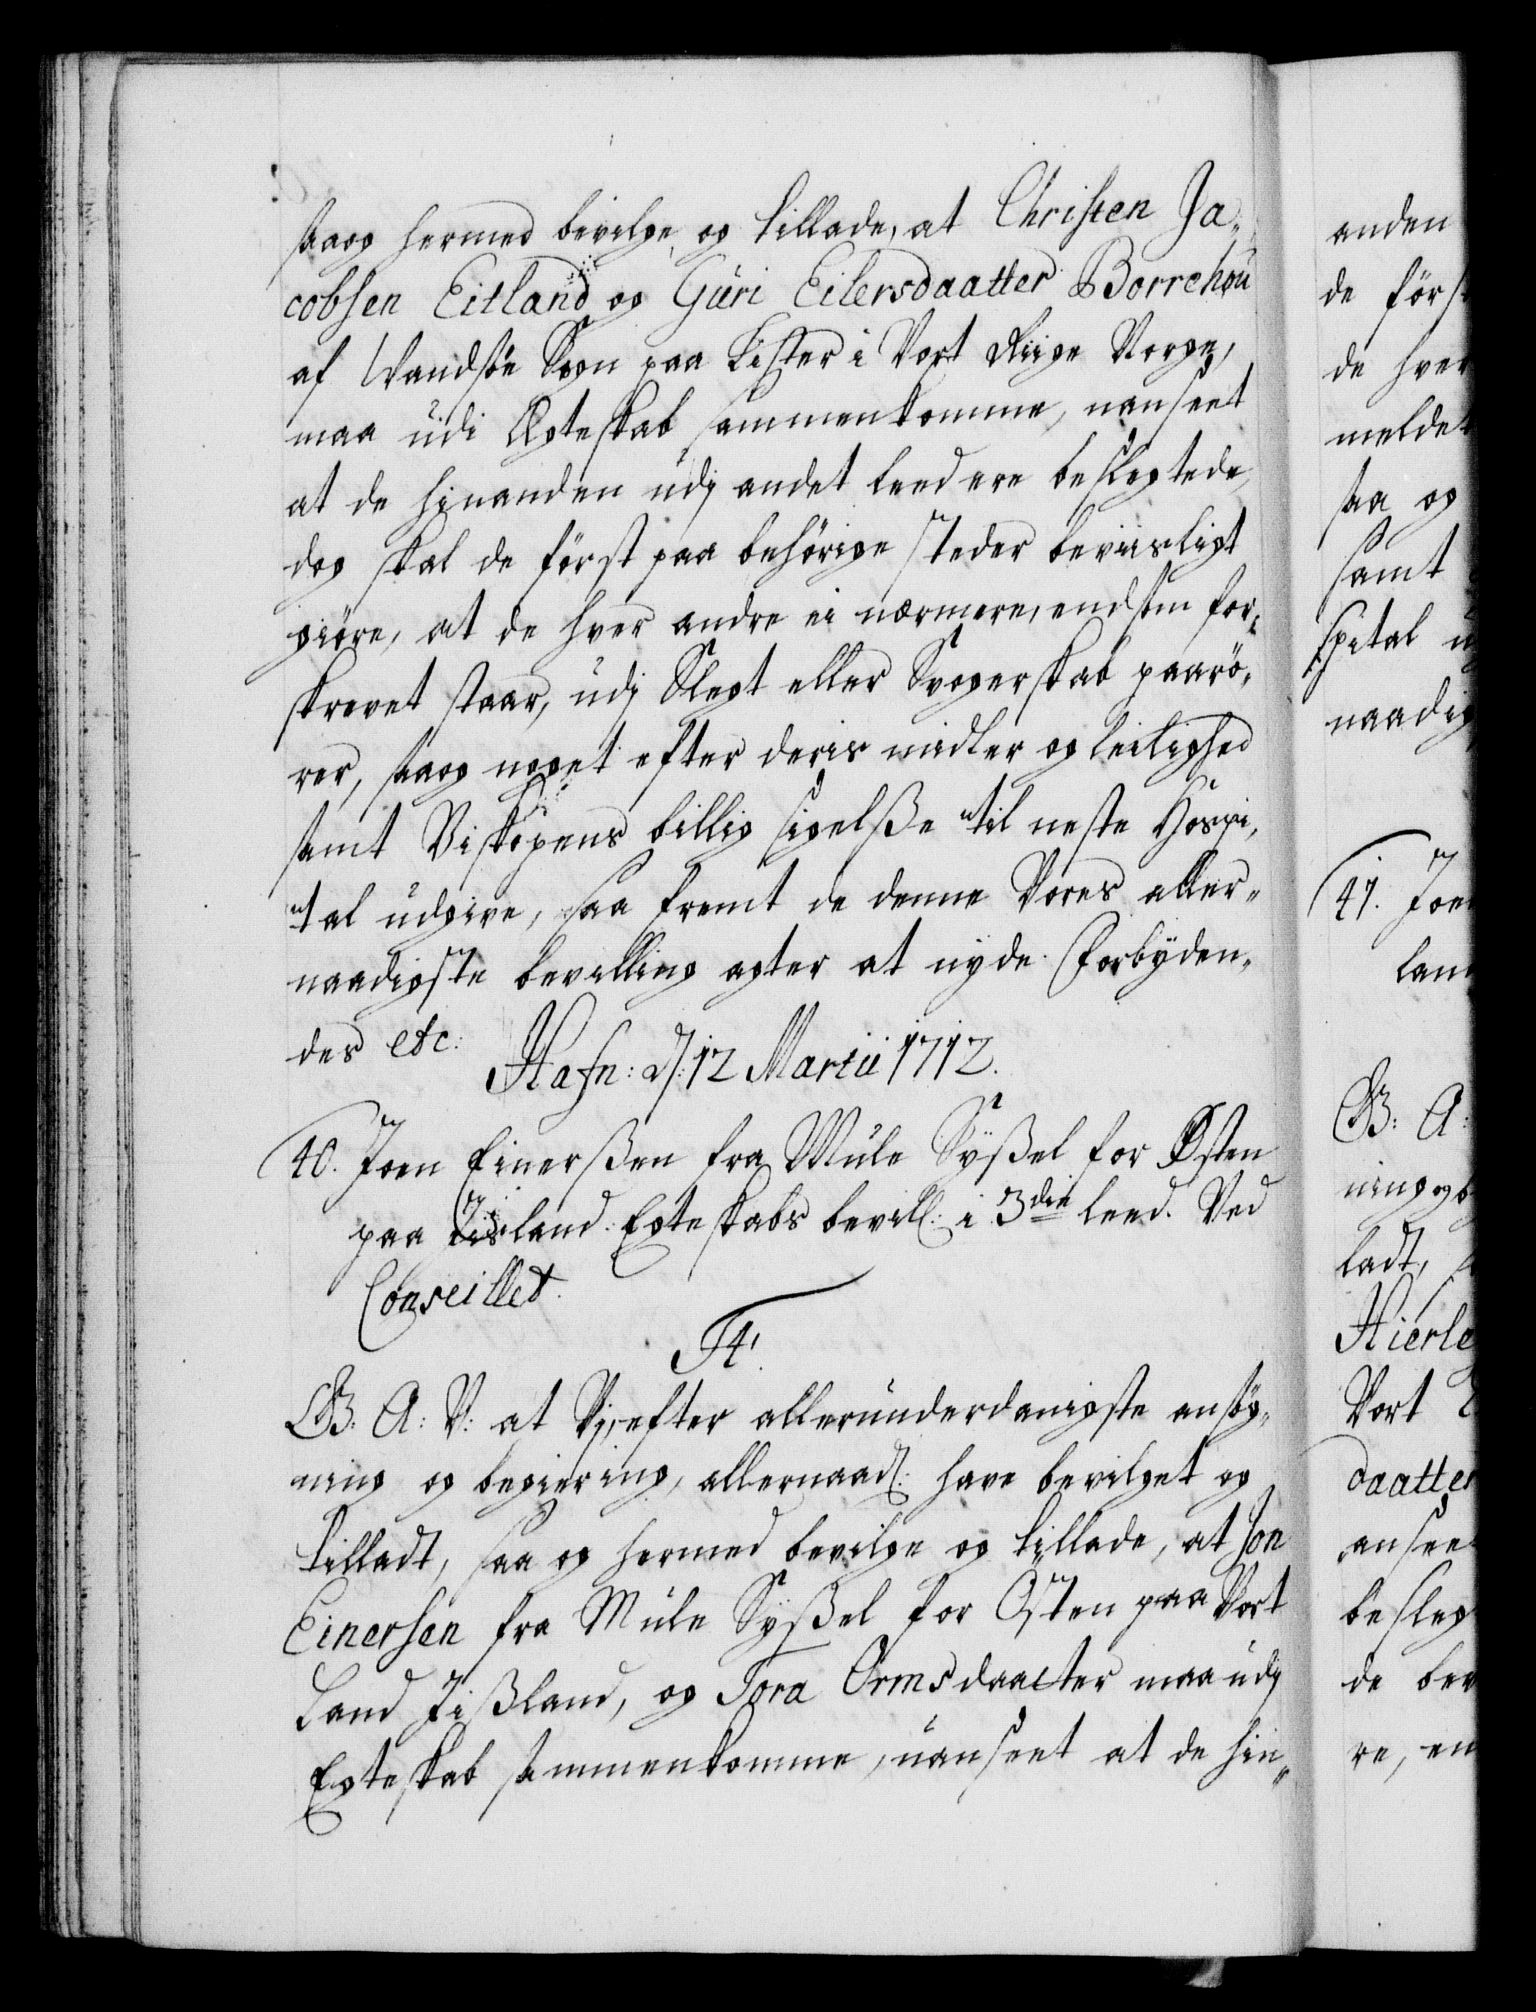 saaog hermed bevilge og tillade, at Christen Ja-
cobsen Eitland og Guri Eilersdaatter Borrehou
af Wandsöe Sogn paa Lister i Vort Riige Norge,
maa udi Ægteskab sammenkomme, uanseet
at de hinanden udj andet leed ere beslegtede,
dog skal de först paa behörige steder beviisligt
giöre, at de hver andre ei nærmere, end som for-
skrevet staar, udj Slegt eller Svogerskab paarö-
rer, saaog noget efter deris midler og leilighed
samt Biskopens billig sigelße til neste Hospi-
tal udgive, saa fremt de denne Vores aller-
naadigste bevilling agter at nyde. Forbyden-
des etc:
Hafn: d: 12 Martii 1712.
40. Joen Einerßen fra Mule Syßel for Østen
paa Iisland. Egteskabs bevill: i 3die leed. Ved
Conseillet.
F4.
G: A: V: at Vj, efter allerunderdanigste ansög-
ning og begiering, allernaad: have bevilget og
tilladt, saa og hermed bevilge og tillade, at Jon
Einersen fra Mule Syßel for Østen paa Vort
Land Iißland, og Tora Ormsdaatter maa udj
Egteskab sammenkomme, uanseet at de hin-
anden
de först
de hver
meldet
saa og
samt
spital
naadig
41. Joen
lan
G: A:
ning og b
ladt,
Hierle
Vort
daatter
ansee
besleg
de bev
re, en